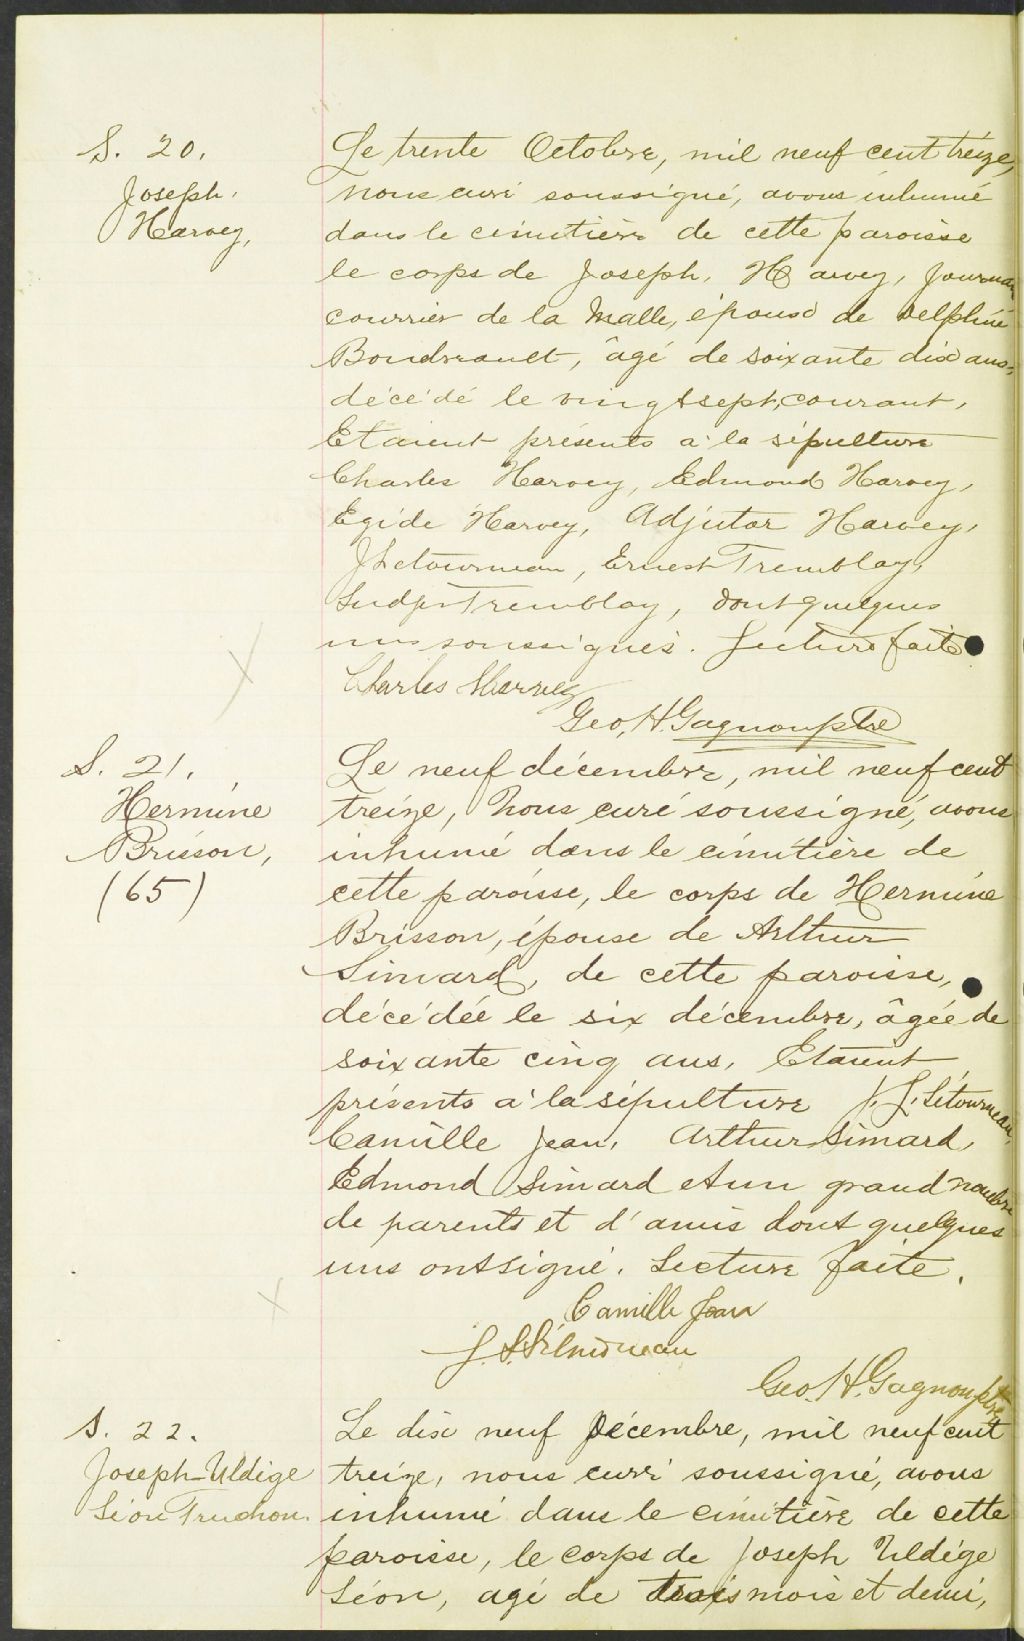 S. 20.
Joseph.
Harvey,
Le trente Octobre, mil neuf cent treize,
nous curé soussigné, avons inhumé
dans le cimitière de cette paroisse
le corps de Joseph. Harvey, Journa
courrier de la Malle, époux de Delphine
Boudreault, âgé de soixante dix ans,
décédé le vingt sept, courant,
Etaient présents à la sépulture
Charles Harvey, Edmond Harvey,
Egide Harvey, Adjutor Harvey,
J Letourneau, Ernest Tremblay,
Tremblay, dont quelques
uns soussignés. Lecture faite
Charles Harvey
Geo. H. Gagnon ptre
S. 21.
Hermine
Brisson,
(65)
Le neuf décembre, mil neuf cent
treize, Nous curé soussigné, avons
inhumé dans le cimitière de
cette paroisse, le corps de Hermine
Brisson, épouse de Arthur
Simard, de cette paroisse,
décédée le six décembre, âgée de
soixante cinq ans, Etaient
présents à la sépulture J. L. Létourneau,
Camille Jean, Arthur Simard,
Edmond Simard et un grand nombre
de parents et d'amis dont quelques
uns ont signé. Lecture faite.
Camille Jean
J. L. Létourneau
Geo. H. Gagnon ptre
S. 22.
Joseph-Uldège
Léon Truchon.
Le dix neuf Décembre, mil neuf cent
treize, nous curé soussigné, avons
inhumé dans le cimitière de cette
paroisse, le corps de Joseph Uldège
Léon, agé de trois mois et demi,